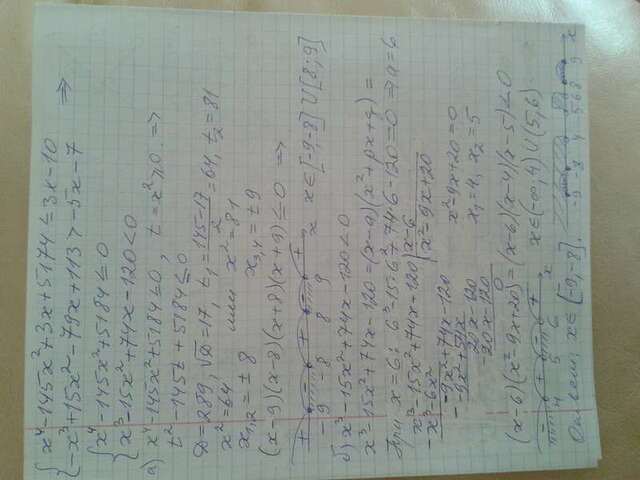 { x⁴-145x²+3x+5174 ≤ 3x-10
{ -x³+15x²-79x+113 > -5x-7 ⇒
{ x⁴-145x²+5184 ≤ 0
{ x³-15x²+74x-120 < 0
а) x⁴-145x²+5184 ≤ 0, t=x²≥0 ⇒
t²-145t+5184 ≤ 0
D=289, √D=17, t₁=(145-17)/2=64, t₂=81
x²=64 или x²=81
x₁,₂=±8 x₃,₄=±9
(x-9)(x-8)(x+8)(x+9) ≤ 0 ⇒
+ - + - +
-9 -8 8 9 x x∈[-9;-8]∪[8;9]
б) x³-15x²+74x-120<0
x³-15x²+74x-120=(x-a)(x²+px+q)=
При x=6: 6³-15·6²+74·6-120=0 ⇒ a=6
x³-15x²+74x-120 | x-6
-x³-6x² | x²-9x+20
-9x²+74x-120
-9x²+54x x²-9x+20=0
20x-120 x₁=4, x₂=5
-20x-120
0
(x-6)(x²-9x+20)=(x-6)(x-4)(x-5)<0
- + - +
4 5 6 x x∈(-∞;4)∪(5;6)
Ответ: x∈[-9;-8]. -9 -8 4 5 6 8 9 x